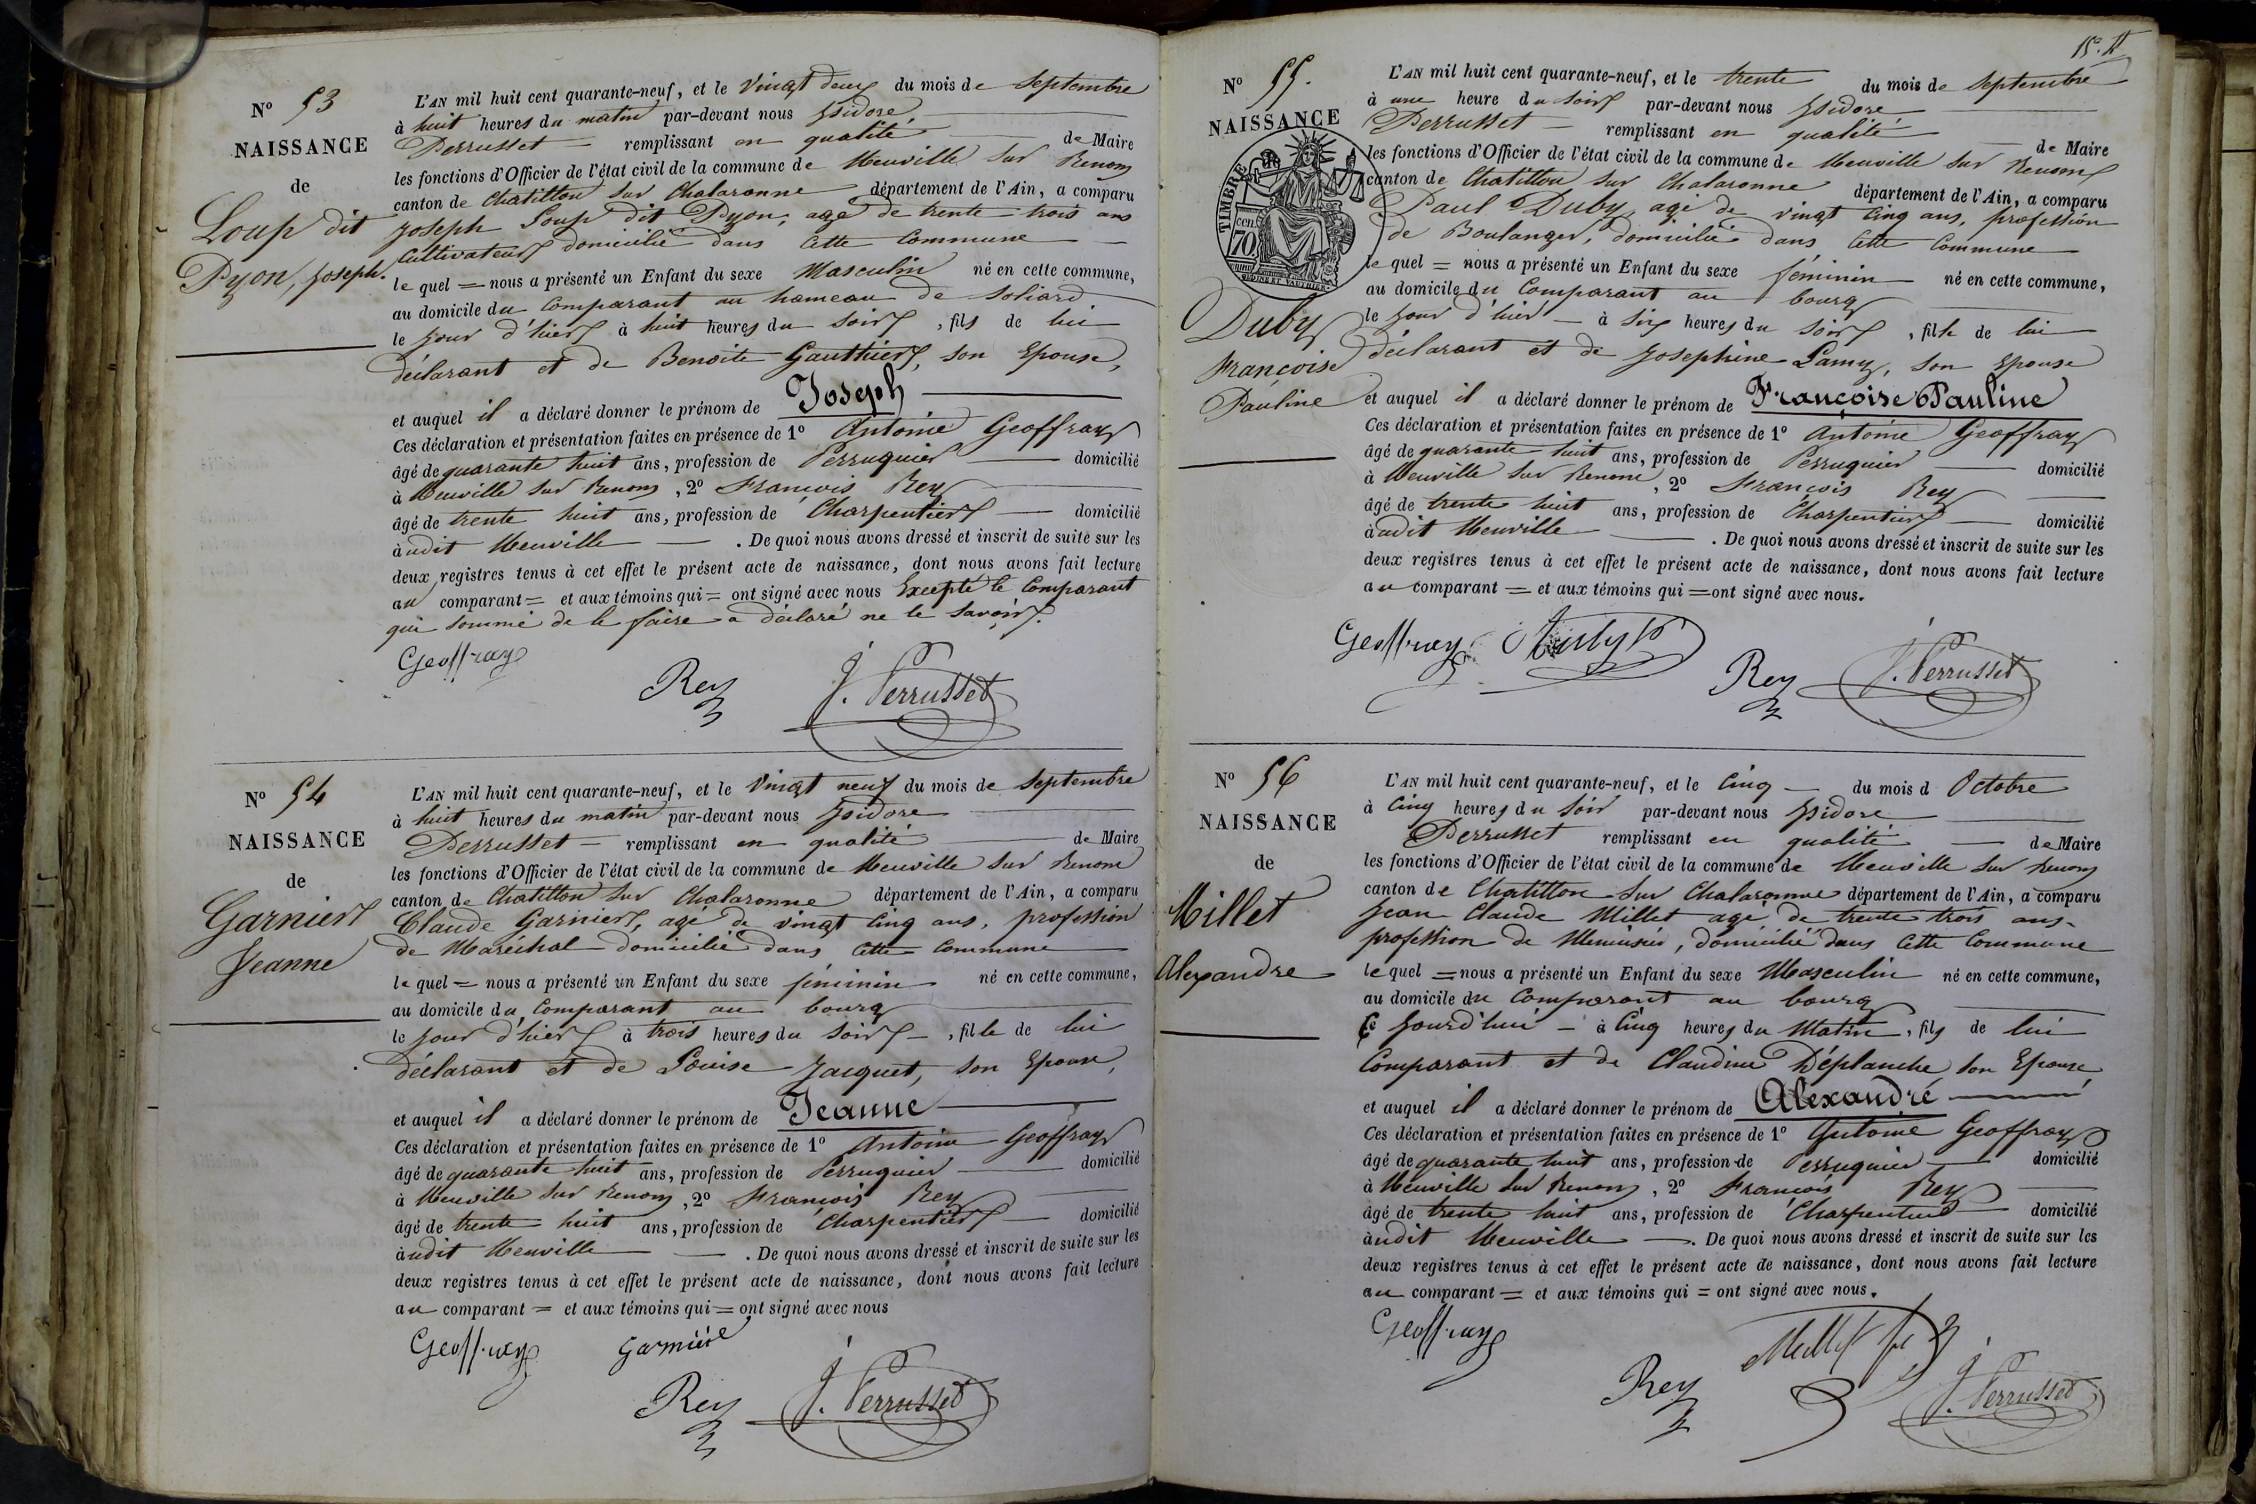 N° 53
NAISSANCE
de
Loup dit
Pyon, Joseph.
L'AN mil huit cent quarante-neuf, et le vingt deux du mois de Septembre
à huit heures du matin par-devant nous Isidore
Perrusset remplissant en qualité de Maire
les fonctions d'Officier de l'état civil de la commune de Neuville sur Renom
canton de Chatillon sur Chalaronne département de l'Ain, a comparu
Joseph Loup dit Pyon, agé de trente trois ans
Cultivateur domicilié dans cette Commune
le quel = nous a présenté un Enfant du sexe Masculin né en cette commune,
au domicile du Comparant au hameau de Soliard
le jour d'hier à huit heures du soir, fils de lui
déclarant et de Benoite Gauthier, son Epouse,
et auquel il a déclaré donner le prénom de Joseph
Ces déclaration et présentation faites en présence de 1° Antoine Geoffray
âgé de quarante huit ans, profession de Perruquier domicilié
à Neuville sur Renom, 2° François Rey
âgé de trente huit ans, profession de Charpentier domicilié
àudit Neuville . De quoi nous avons dressé et inscrit de suite sur les
deux registres tenus à cet effet le présent acte de naissance, dont nous avons fait lecture
au comparant = et aux témoins qui = ont signé avec nous Excepté le Comparant
qui sommé de le faire a déclaré ne le savoir.
Geoffray
Rey
J. Perrusset
N° 54
NAISSANCE
de
Garnier
Jeanne
L'AN mil huit cent quarante-neuf, et le vingt neuf du mois de Septembre
à huit heures du matin par-devant nous Isidore
Perrusset remplissant en qualité de Maire
les fonctions d'Officier de l'état civil de la commune de Neuville sur Renom
canton de Chatillon sur Chalaronne département de l'Ain, a comparu
Claude Garnier, agé de vingt cinq ans, profession
de Maréchal domicilié dans cette Commune
le quel = nous a présenté un Enfant du sexe féminin né en cette commune,
au domicile du Comparant au bourg
le jour d'hier à trois heures du soir, fille de lui
déclarant et de Louise Jacquet, son Epouse,
et auquel il a déclaré donner le prénom de Jeanne
Ces déclaration et présentation faites en présence de 1° Antoine Geoffray
âgé de quarante huit ans, profession de Perruquier domicilié
à Neuville sur Renom, 2° François Rey
âgé de trente huit ans, profession de Charpentier domicilié
àudit Neuville . De quoi nous avons dressé et inscrit de suite sur les
deux registres tenus à cet effet le présent acte de naissance, dont nous avons fait lecture
au comparant = et aux témoins qui = ont signé avec nous
Geoffray
Garnier
Rey
J. Perrusset
N° 55.
NAISSANCE
TIMBRE
70
cen
Duby
Françoise
Pauline
L'AN mil huit cent quarante-neuf, et le trente du mois de Septembre
à une heure du soir par-devant nous Isidore
Perrusset remplissant en qualité de Maire
les fonctions d'Officier de l'état civil de la commune de Neuville sur Renom
canton de Chatillon sur Chalaronne département de l'Ain, a comparu
Paul Duby, agé de vingt cinq ans, profession
de Boulanger, domicilié dans cette Commune
le quel = nous a présenté un Enfant du sexe féminin né en cette commune,
au domicile du Comparant au bourg
le jour d'hier à six heures du soir, fille de lui
déclarant et de Josephine Lamy, son Epouse
et auquel il a déclaré donner le prénom de Françoise Pauline
Ces déclaration et présentation faites en présence de 1° Antoine Geoffray
âgé de quarante huit ans, profession de Perruquier domicilié
à Neuville sur Renom, 2° François Rey
âgé de trente huit ans, profession de Charpentier domicilié
àudit Neuville . De quoi nous avons dressé et inscrit de suite sur les
deux registres tenus à cet effet le présent acte de naissance, dont nous avons fait lecture
au comparant = et aux témoins qui = ont signé avec nous.
Geoffray
Duby
Rey
J. Perrusset
N° 56
NAISSANCE
de
Millet
Alexandre
L'AN mil huit cent quarante-neuf, et le Cinq du mois d Octobre
à Cinq heures du soir par-devant nous Isidore
Perrusset remplissant en qualité de Maire
les fonctions d'Officier de l'état civil de la commune de Neuville sur Renom
canton de Chatillon sur Chalaronne département de l'Ain, a comparu
Jean Claude Millet agé de trente trois ans
profession de Menuisier, domicilié dans cette Commune
le quel = nous a présenté un Enfant du sexe Masculin né en cette commune,
au domicile du Comparant au bourg
Ce jourd'hui à Cinq heures du Matin, fils de lui
Comparant et de Claudine Déplanche son Epouse,
et auquel il a déclaré donner le prénom de Alexandre
Ces déclaration et présentation faites en présence de 1° Antoine Geoffray
âgé de quarante huit ans, profession de Perruquier domicilié
à Neuville sur Renom, 2° François Rey
âgé de trente huit ans, profession de Charpentier domicilié
àudit Neuville . De quoi nous avons dressé et inscrit de suite sur les
deux registres tenus à cet effet le présent acte de naissance, dont nous avons fait lecture
au comparant = et aux témoins qui = ont signé avec nous.
Geoffray
Millet
Rey
J. Perrusset